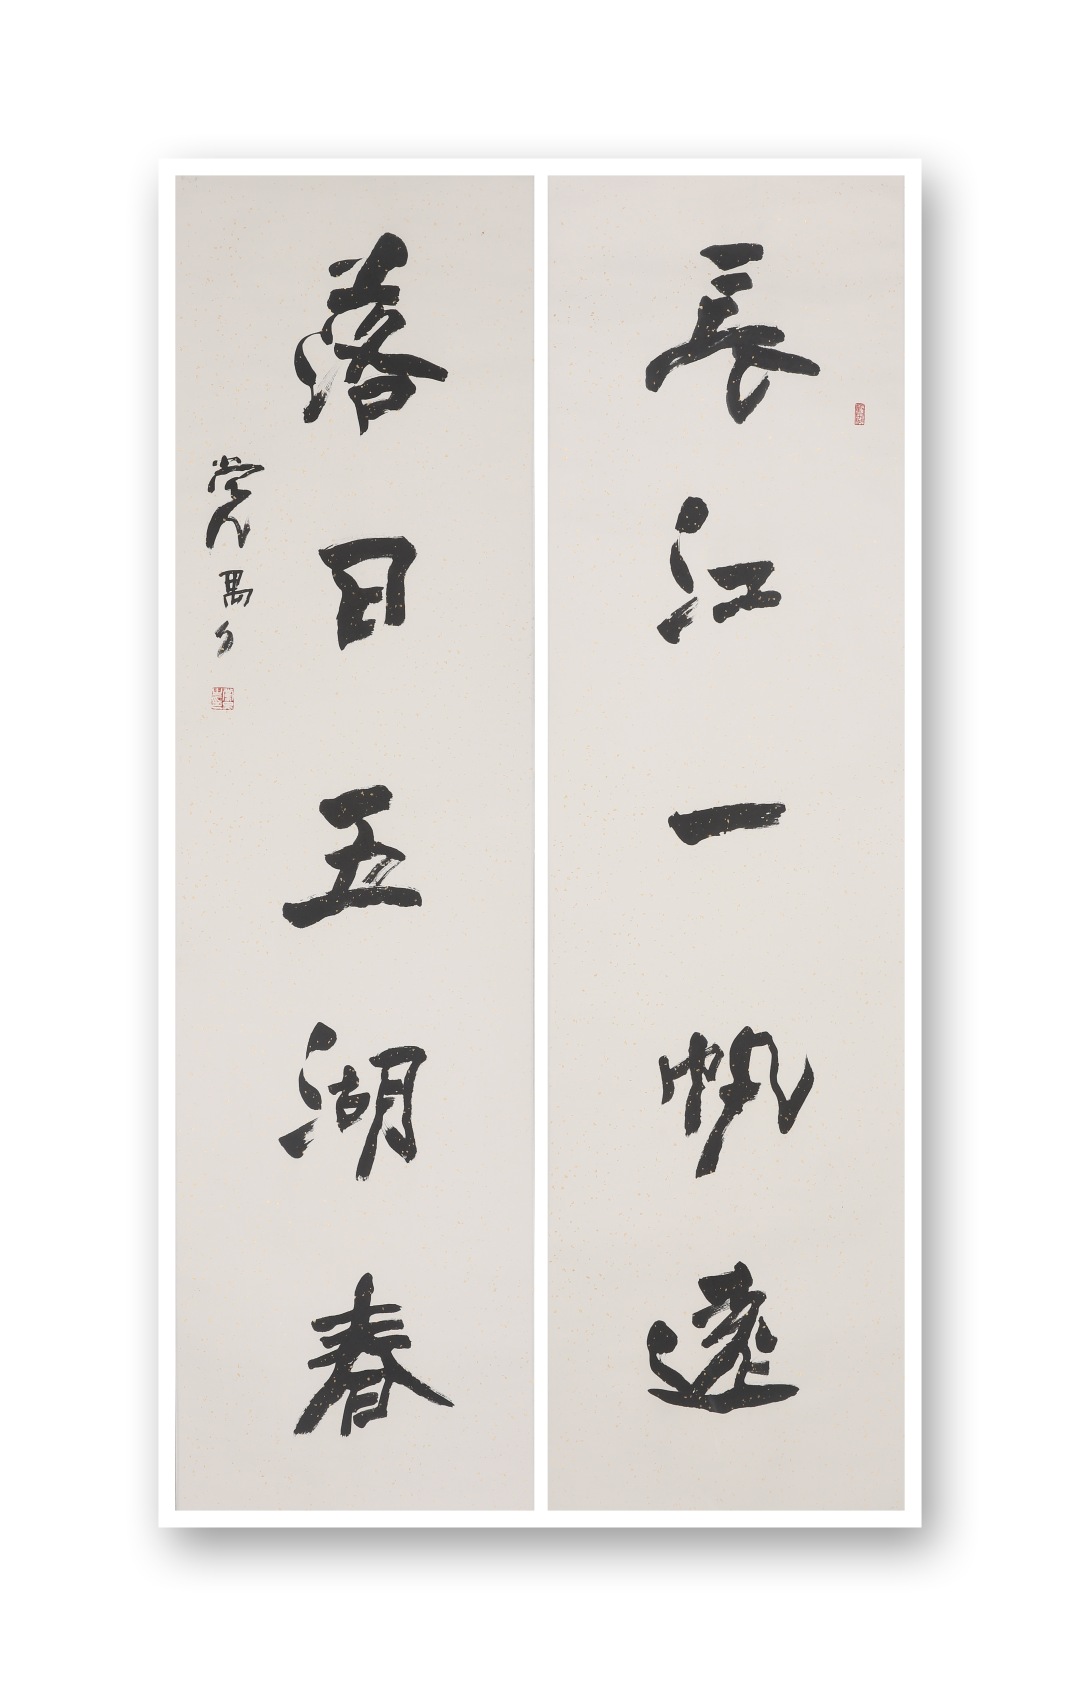 長江一帆遠
落日五湖春
党禹